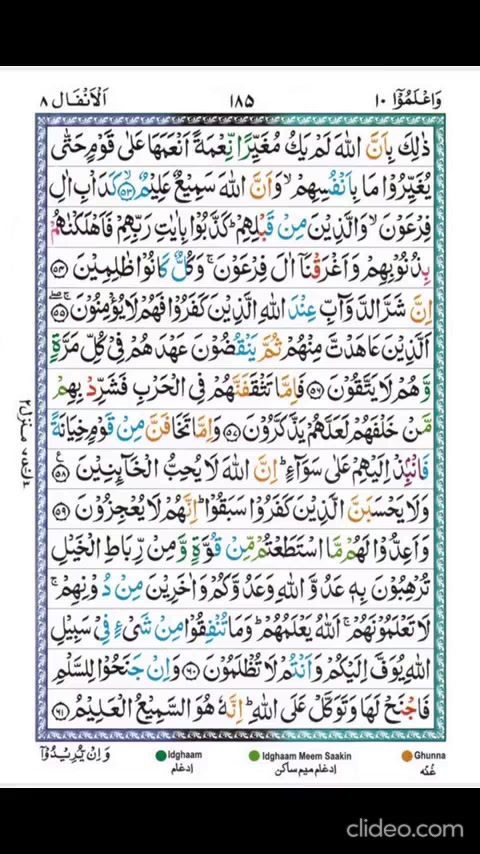 وَاعْلَمُوْٓا ١٠
١٨٥
اَلْاَنْفَال ٨
ذٰلِكَ بِاَنَّ اللّٰهَ لَمْ يَكُ مُغَيِّرًا نِّعْمَةً اَنْعَمَهَا عَلٰى قَوْمٍ حَتّٰى
يُغَيِّرُوْا مَا بِاَنْفُسِهِمْ ۙ وَاَنَّ اللّٰهَ سَمِيْعٌ عَلِيْمٌ ۙ﴿٥٣﴾ كَدَاْبِ اٰلِ
فِرْعَوْنَ ۙ وَالَّذِيْنَ مِنْ قَبْلِهِمْ ؕ كَذَّبُوْا بِاٰيٰتِ رَبِّهِمْ فَاَهْلَكْنٰهُمْ
بِذُنُوْبِهِمْ وَاَغْرَقْنَاۤ اٰلَ فِرْعَوْنَ ۚ وَكُلٌّ كَانُوْا ظٰلِمِيْنَ ﴿٥٤﴾
اِنَّ شَرَّ الدَّوَآبِّ عِنْدَ اللّٰهِ الَّذِيْنَ كَفَرُوْا فَهُمْ لَا يُؤْمِنُوْنَ ۖۚ﴿٥٥﴾
اَلَّذِيْنَ عَاهَدْتَّ مِنْهُمْ ثُمَّ يَنْقُضُوْنَ عَهْدَهُمْ فِيْ كُلِّ مَرَّةٍ
وَّهُمْ لَا يَتَّقُوْنَ ﴿٥٦﴾ فَاِمَّا تَثْقَفَنَّهُمْ فِى الْحَرْبِ فَشَرِّدْ بِهِمْ
مَّنْ خَلْفَهُمْ لَعَلَّهُمْ يَذَّكَّرُوْنَ ﴿٥٧﴾ وَاِمَّا تَخَافَنَّ مِنْ قَوْمٍ خِيَانَةً
فَانْۢبِذْ اِلَيْهِمْ عَلٰى سَوَآءٍ ؕ اِنَّ اللّٰهَ لَا يُحِبُّ الْخَآئِنِيْنَ ﴿٥٨﴾
وَلَا يَحْسَبَنَّ الَّذِيْنَ كَفَرُوْا سَبَقُوْا ؕ اِنَّهُمْ لَا يُعْجِزُوْنَ ﴿٥٩﴾
وَاَعِدُّوْا لَهُمْ مَّا اسْتَطَعْتُمْ مِّنْ قُوَّةٍ وَّمِنْ رِّبَاطِ الْخَيْلِ
تُرْهِبُوْنَ بِهٖ عَدُوَّ اللّٰهِ وَعَدُوَّكُمْ وَاٰخَرِيْنَ مِنْ دُوْنِهِمْ ۚ
لَا تَعْلَمُوْنَهُمْ ۚ اَللّٰهُ يَعْلَمُهُمْ ؕ وَمَا تُنْفِقُوْا مِنْ شَيْءٍ فِيْ سَبِيْلِ
اللّٰهِ يُوَفَّ اِلَيْكُمْ وَاَنْتُمْ لَا تُظْلَمُوْنَ ﴿٦٠﴾ وَاِنْ جَنَحُوْا لِلسَّلْمِ
فَاجْنَحْ لَهَا وَتَوَكَّلْ عَلَى اللّٰهِ ؕ اِنَّهٗ هُوَ السَّمِيْعُ الْعَلِيْمُ ﴿٦١﴾
وَاِنْ يُّرِيْدُوْٓا
Idghaam
ادغام
Idghaam Meem Saakin
ادغام میم ساکن
Ghunna
غنّه
clideo.com